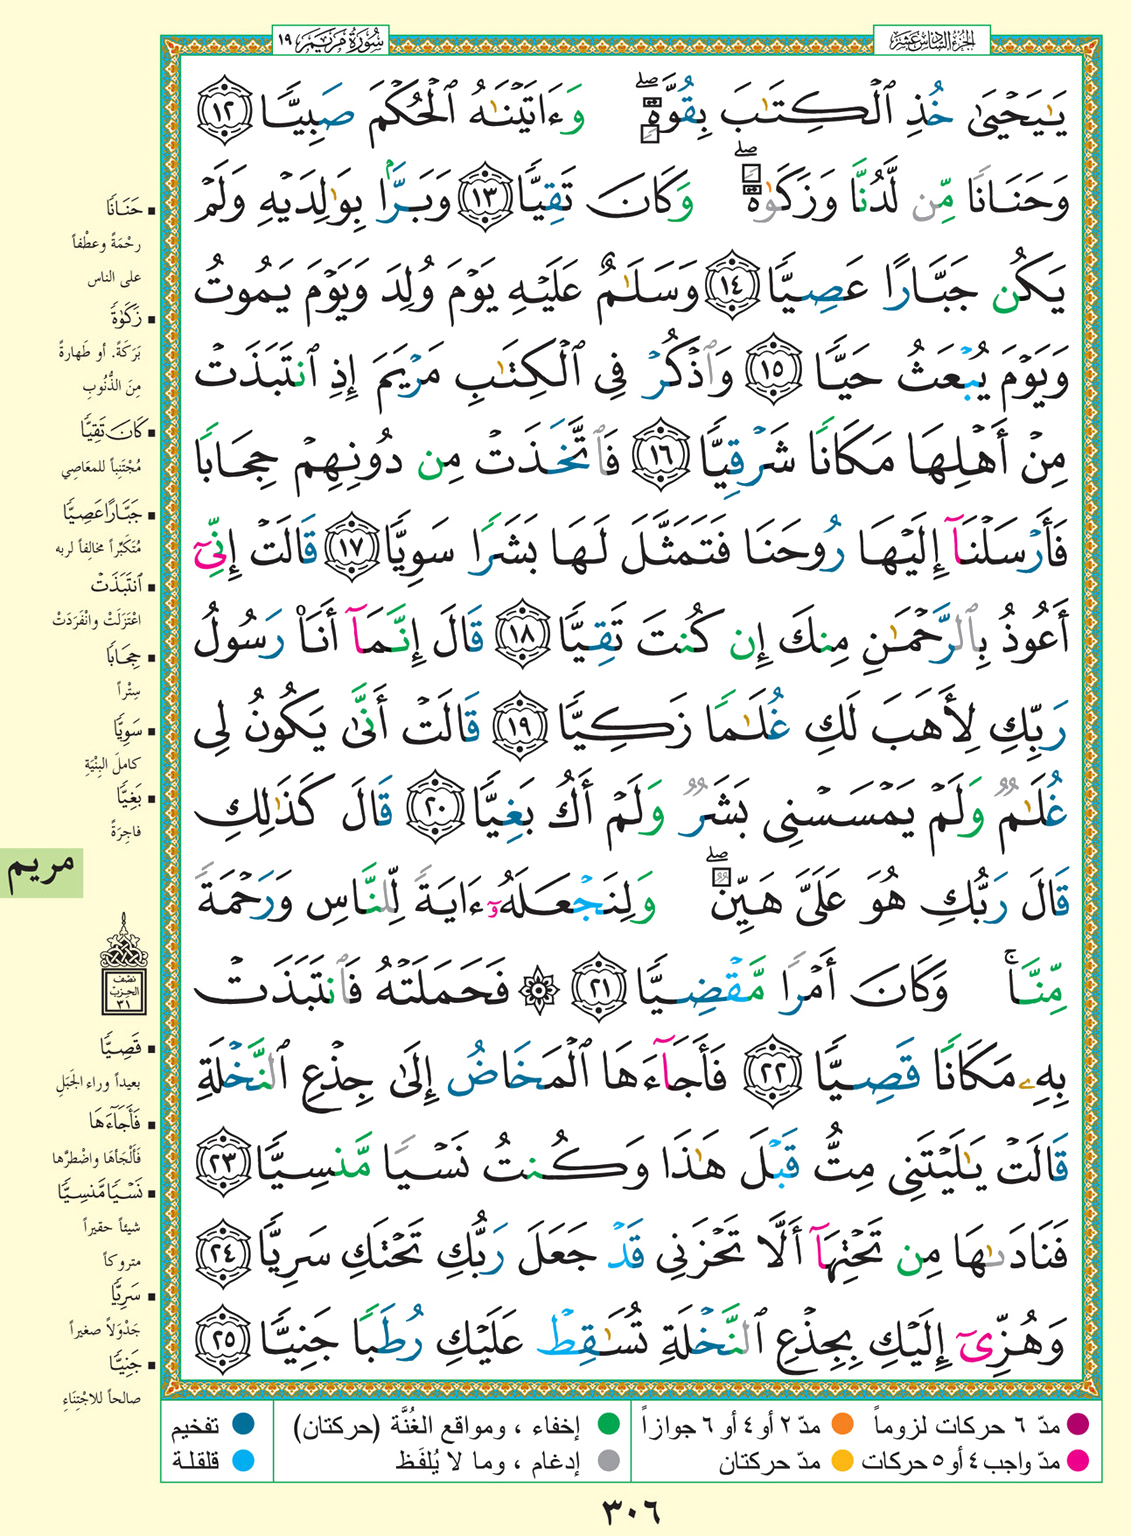 الجزء السادس عشر
سُورَةُ مَرْيَم ١٩
يَٰيَحْيَىٰ خُذِ ٱلْكِتَٰبَ بِقُوَّةٍۖ وَءَاتَيْنَٰهُ ٱلْحُكْمَ صَبِيًّا ١٢
وَحَنَانًا مِّن لَّدُنَّا وَزَكَوٰةًۖ وَكَانَ تَقِيًّا ١٣ وَبَرًّۢا بِوَٰلِدَيْهِ وَلَمْ
يَكُن جَبَّارًا عَصِيًّا ١٤ وَسَلَٰمٌ عَلَيْهِ يَوْمَ وُلِدَ وَيَوْمَ يَمُوتُ
وَيَوْمَ يُبْعَثُ حَيًّا ١٥ وَٱذْكُرْ فِى ٱلْكِتَٰبِ مَرْيَمَ إِذِ ٱنتَبَذَتْ
مِنْ أَهْلِهَا مَكَانًا شَرْقِيًّا ١٦ فَٱتَّخَذَتْ مِن دُونِهِمْ حِجَابًا
فَأَرْسَلْنَآ إِلَيْهَا رُوحَنَا فَتَمَثَّلَ لَهَا بَشَرًا سَوِيًّا ١٧ قَالَتْ إِنِّىٓ
أَعُوذُ بِٱلرَّحْمَٰنِ مِنكَ إِن كُنتَ تَقِيًّا ١٨ قَالَ إِنَّمَآ أَنَا۠ رَسُولُ
رَبِّكِ لِأَهَبَ لَكِ غُلَٰمًا زَكِيًّا ١٩ قَالَتْ أَنَّىٰ يَكُونُ لِى
غُلَٰمٌ وَلَمْ يَمْسَسْنِى بَشَرٌ وَلَمْ أَكُ بَغِيًّا ٢٠ قَالَ كَذَٰلِكِ
قَالَ رَبُّكِ هُوَ عَلَىَّ هَيِّنٌۖ وَلِنَجْعَلَهُۥٓ ءَايَةً لِّلنَّاسِ وَرَحْمَةً
مِّنَّاۚ وَكَانَ أَمْرًا مَّقْضِيًّا ٢١ ۞ فَحَمَلَتْهُ فَٱنتَبَذَتْ
بِهِۦ مَكَانًا قَصِيًّا ٢٢ فَأَجَآءَهَا ٱلْمَخَاضُ إِلَىٰ جِذْعِ ٱلنَّخْلَةِ
قَالَتْ يَٰلَيْتَنِى مِتُّ قَبْلَ هَٰذَا وَكُنتُ نَسْيًا مَّنسِيًّا ٢٣
فَنَادَىٰهَا مِن تَحْتِهَآ أَلَّا تَحْزَنِى قَدْ جَعَلَ رَبُّكِ تَحْتَكِ سَرِيًّا ٢٤
وَهُزِّىٓ إِلَيْكِ بِجِذْعِ ٱلنَّخْلَةِ تُسَٰقِطْ عَلَيْكِ رُطَبًا جَنِيًّا ٢٥
▪ حَنَانًا
رحْمَةً وعطْفاً
على الناس
▪ زَكَوٰةً
بَرَكَةً. أو طَهارةً
مِنَ الذُّنُوبِ
▪ كَانَ تَقِيًّا
مُجْتَنِباً للمعَاصِي
▪ جَبَّارًا عَصِيًّا
مُتَكَبِّراً مخالِفاً لربه
▪ ٱنتَبَذَتْ
اعْتَزَلَتْ وانْفَرَدَتْ
▪ حِجَابًا
سِتْراً
▪ سَوِيًّا
كاملَ البِنْيَةِ
▪ بَغِيًّا
فاجِرَةً
مريم
نصف
الحزب
٣١
▪ قَصِيًّا
بعيداً وراء الجَبَلِ
▪ فَأَجَآءَهَا
فَأَلْجَأهَا واضْطَرَّها
▪ نَسْيًا مَّنسِيًّا
شيئاً حقيراً
متروكاً
▪ سَرِيًّا
جَدْوَلاً صغيراً
▪ جَنِيًّا
صالحاً للاجْتِنَاءِ
مدّ ٦ حركات لزوماً مدّ ٢ أو ٤ أو ٦ جوازاً إخفاء ، ومواقع الغُنَّة (حركتان) تفخيم
مدّ واجب ٤ أو ٥ حركات مدّ حركتان إدغام ، وما لا يُلفَظ قلقلة
٣٠٦